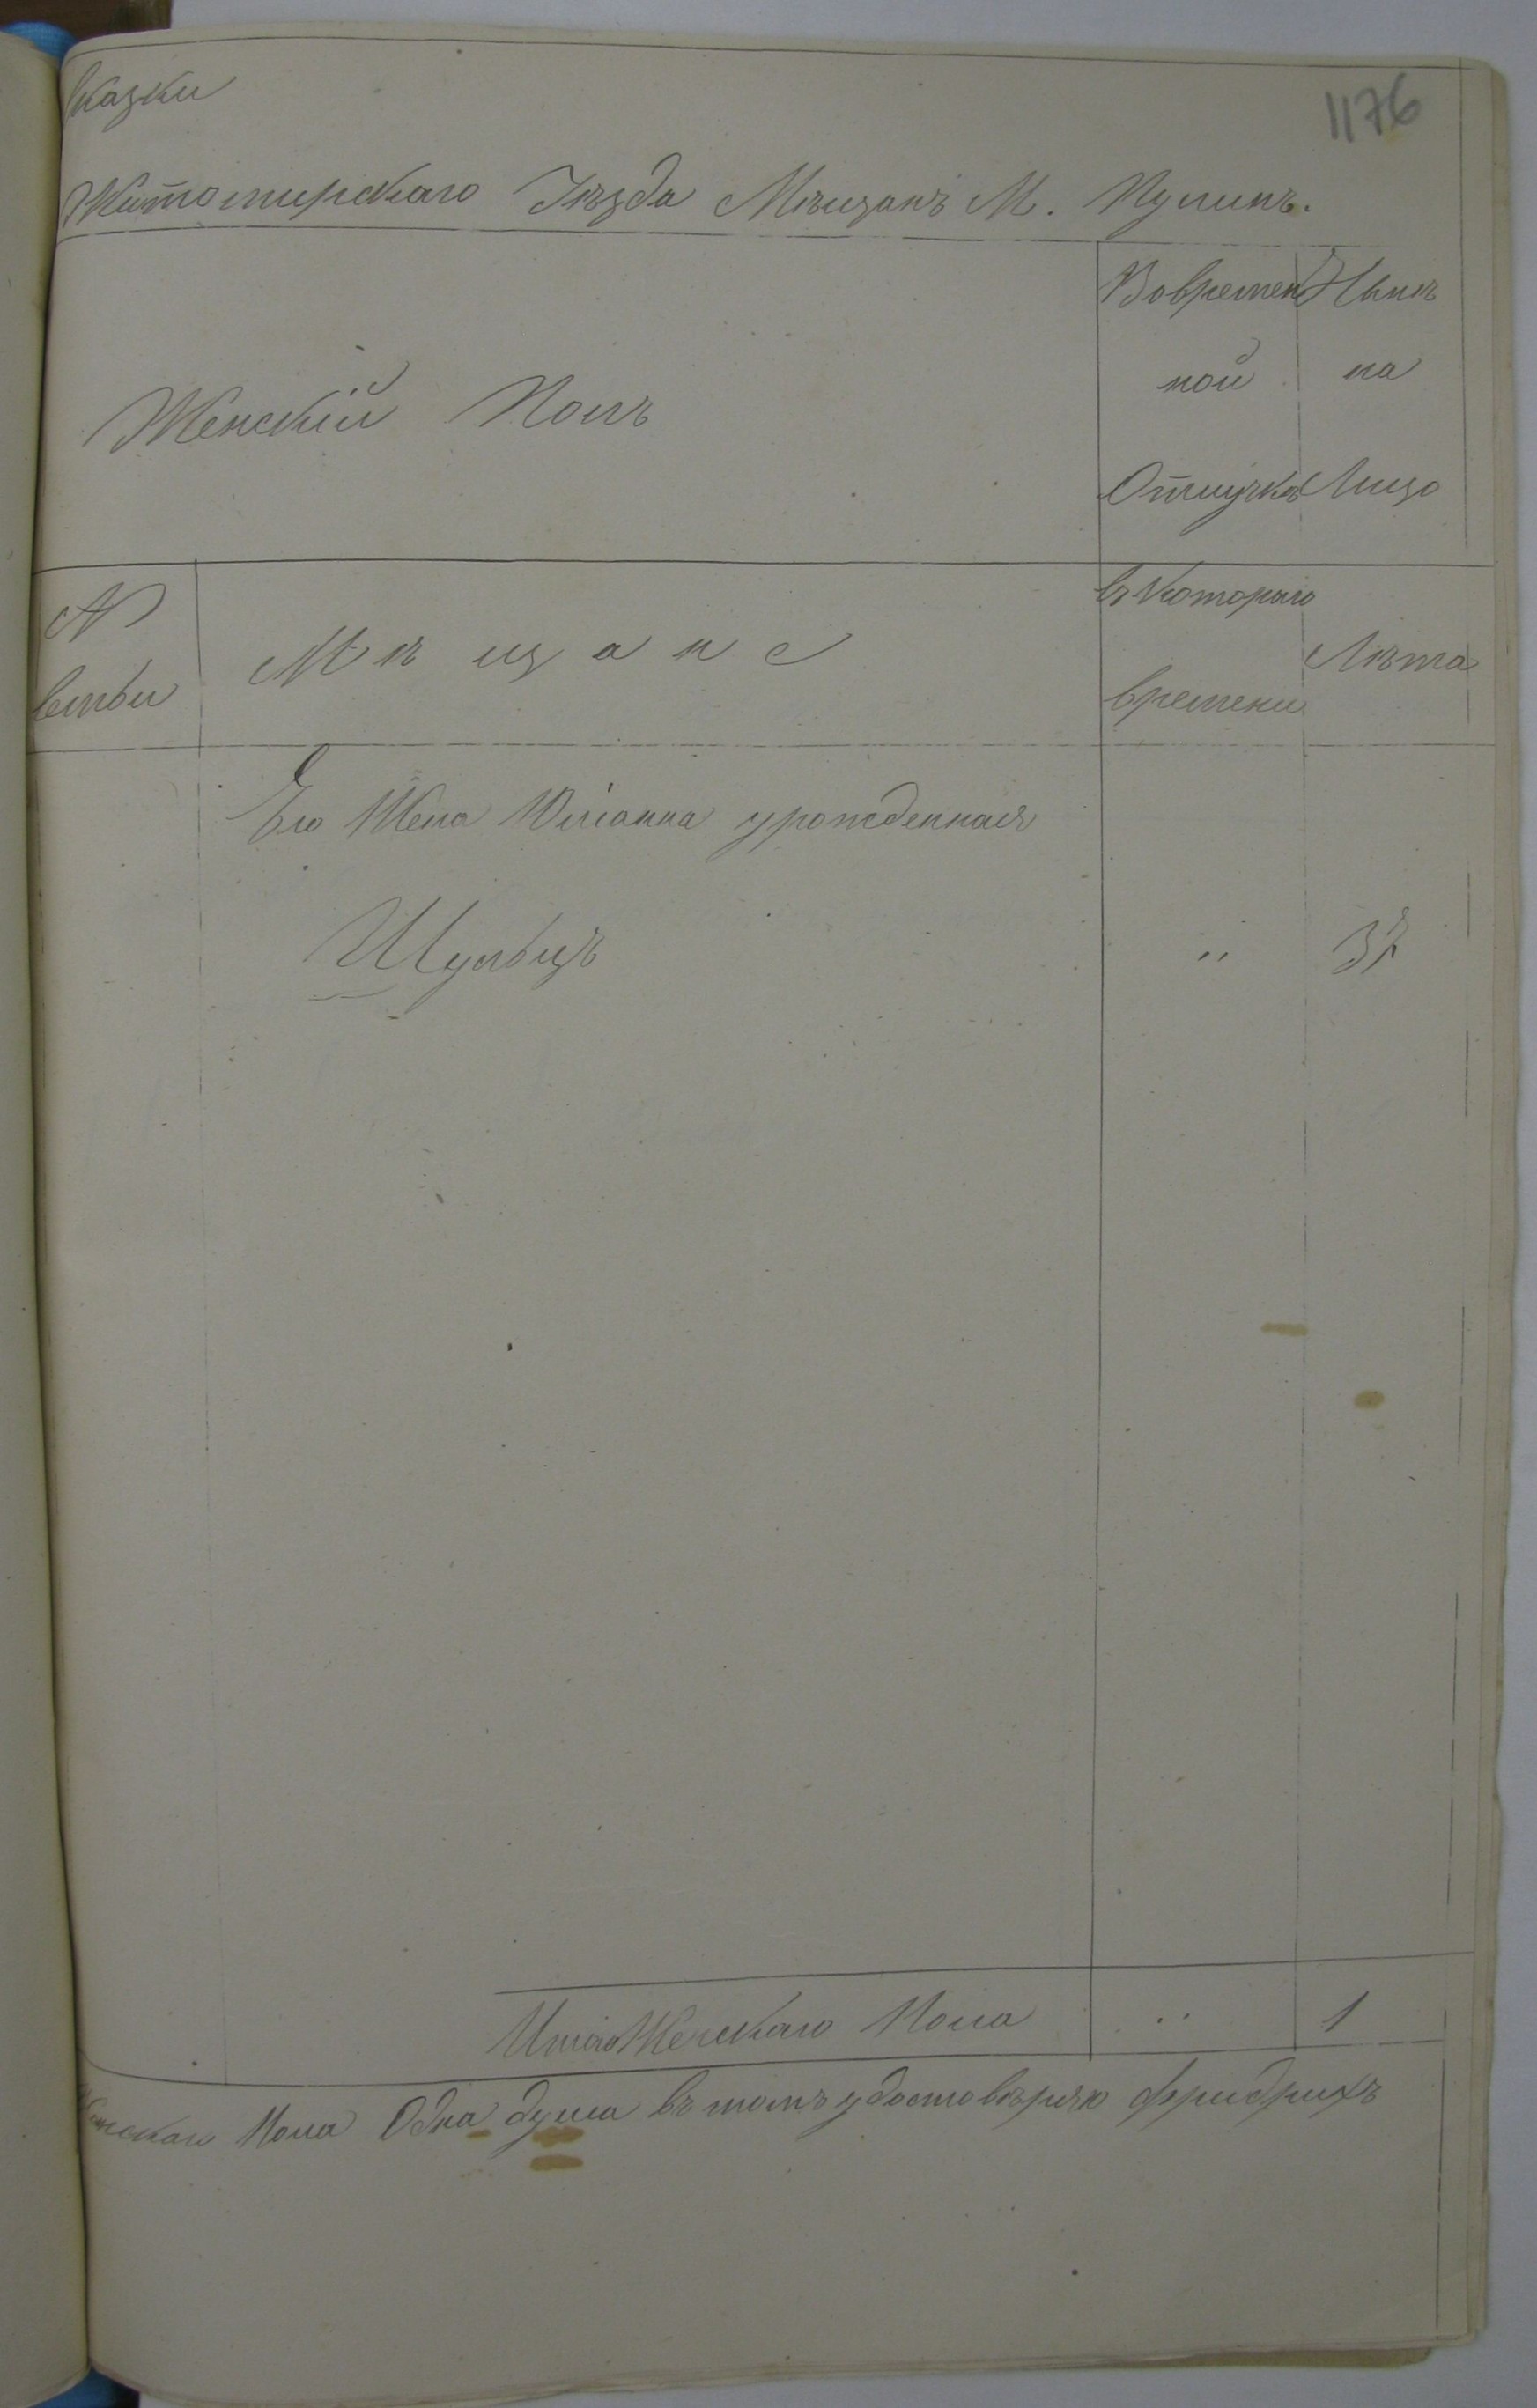 Сказки
1176
Житомирскаго Уѣзда Мѣщанъ М. Пулинъ.
Вовремен Нынѣ
ной на
Женскій Полъ
Отлучкѣ Лицо
№ Мѣщане съ Котораго Лѣта
семьи времени
Его Жена Юлианна урожденная
Шульцъ " 37
Итого Женскаго Пола " 1
Женскаго Пола Одна душа въ томъ удостовѣряю Фридрихъ